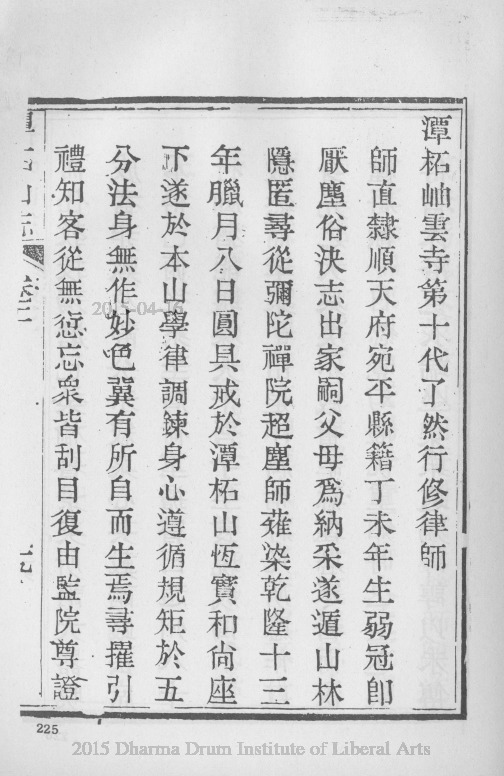 潭柘岫雲寺第十代了然行修律師
師直隸順天府宛平縣籍丁未年生弱冠卽
厭塵俗決志出家嗣父母爲納采遂遁山林
隱匿尋從彌陀禪院超塵師薙染乾隆十三
年臘月八日圓具戒於潭柘山恆實和尙座
下遂於本山學律調鍊身心遵循規矩於五
分法身無作妙色冀有所自而生焉尋擢引
禮知客從無愆忘衆皆刮目復由監院尊證
山志
卷二
225
2015-04-16
2015 Dharma Drum Institute of Liberal Arts